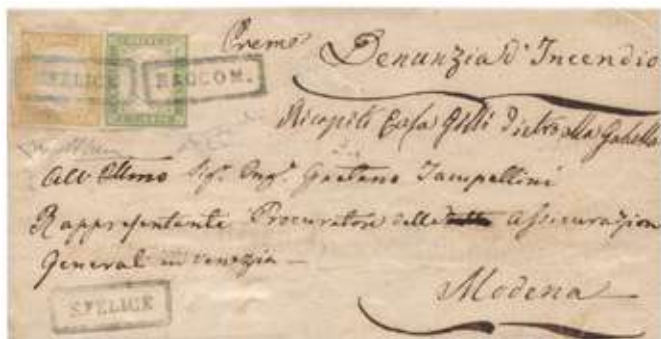 Preme
Denunzia d'Incendio
S.FELICE
RACCOM.
Ricapiti Casa Gilli dietro alla Gabella
All' Illmo Sigr. Ingr. Gaetano Jampellini
Rappresentante Procuratore delle Assicurazion
Generali in Venezia
Modena
S.FELICE